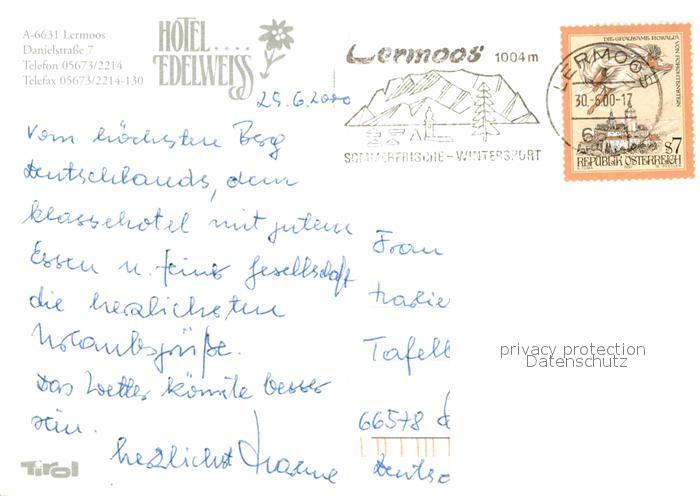 A-6631 Lermoos
Danielstraße 7
Telefon 05673/2214
Telefax 05673/2214-130
HOTEL....
EDELWEISS
Lermoos 1004m
SOMMERFRISCHE-WINTERSPORT
LERMOOS
30.-6.00-17
DIE GRAUSAME ROSALIA VON FORCHTENSTEIN
S7
REPUBLIK ÖSTERREICH
29.6.2000
Vom höchsten Berg
Deutschlands, dem
Klassehotel mit gutem
Essen u. feine Gesellschaft
die herzlichsten
Urlaubsgrüße.
Das Wetter könnte besser
sein.
herzlichst
Frau
Tafel
66578
Deutsc
privacy protection
Datenschutz
Tirol